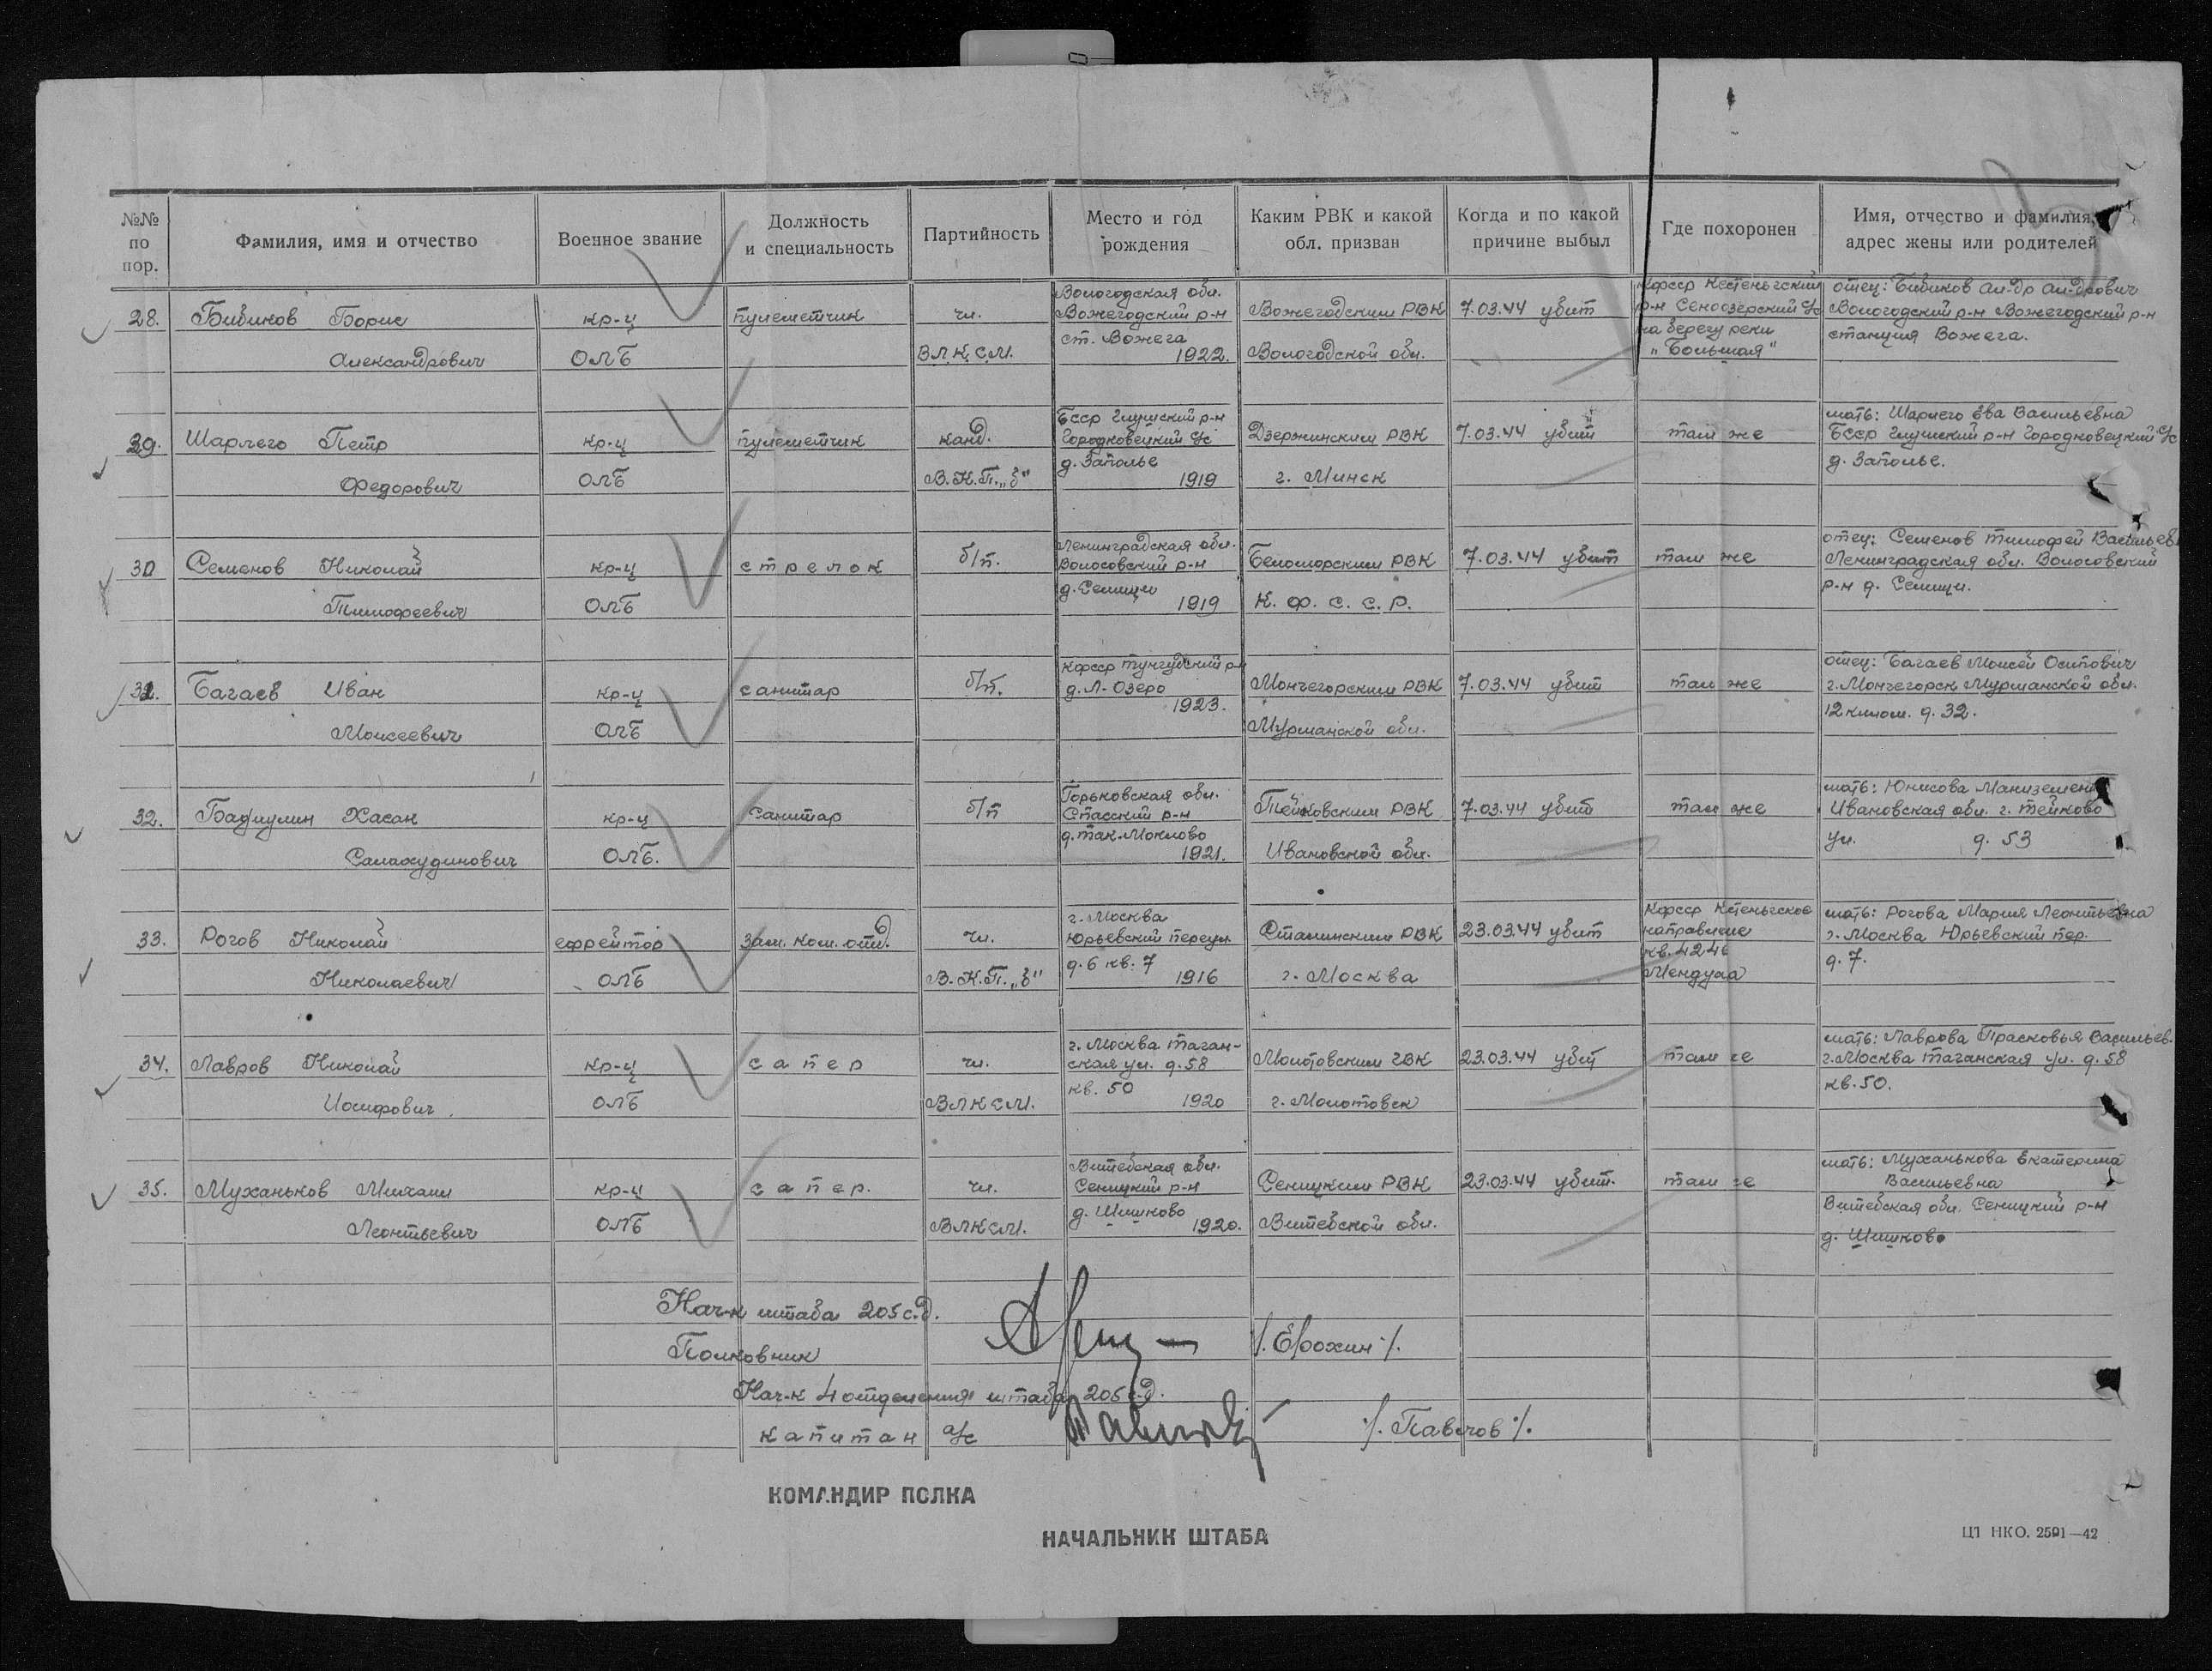 №№ по пор.
Фамилия, имя и отчество
Военное звание
Должность и специальность
Партийность
Место и год рождения
Каким РВК и какой обл. призван
Когда и по какой причине выбыл
Где похоронен
Имя, отчество и фамилия, адрес жены или родителей
28. Бибиков Борис Александрович
кр-ц ОЛБ
пулеметчик
чл. ВЛКСМ.
Вологодская обл. Вожегодский р-н ст. Вожега 1922.
Вожегодским РВК Вологодской обл.
7.03.44 убит
Кфсср Кестеньгский р-н Сеноозерский с/с на берегу реки "Большая"
отец: Бибиков Ал-др Ал-дрович Вологодский р-н Вожегодский р-н станция Вожега.
29. Шарлего Петр Федорович
кр-ц ОЛБ
пулеметчик
канд. В.К.П. „б"
Бсср Глуский р-н Городковецкий с/с д. Заполье 1919
Дзержинским РВК г. Минск
7.03.44 убит
там же
мать: Шарлего Ева Васильевна Бсср Глуский р-н Городковецкий с/с д. Заполье.
30 Семенов Николай Тимофеевич
кр-ц ОЛБ
стрелок
б/п.
Ленинградская обл. Волосовский р-н д. Селищи 1919
Беломорским РВК К. Ф. С. С. Р.
7.03.44 убит
там же
отец: Семенов Тимофей Васильев Ленинградская обл. Волосовский р-н д. Селищи.
31. Багаев Иван Моисеевич
кр-ц ОЛБ
санитар
б/п.
Кфсср Тунгудский р-н д. Л-Озеро 1923.
Мончегорским РВК Мурманской обл.
7.03.44 убит
там же
отец: Багаев Моисей Осипович г. Мончегорск Мурманской обл. 12 килом. д. 32.
32. Бадиулин Хасан Салахудинович
кр-ц ОЛБ.
санитар
б/п
Горьковская обл. Спасский р-н д. Так. Моклово 1921.
Тейковским РВК Ивановской обл.
7.03.44 убит
там же
мать: Юнисова Ивановская обл. г. Тейково ул. д. 53
33. Рогов Николай Николаевич
ефрейтор ОЛБ
зам. ком. отд.
чл. В.К.П. „б"
г. Москва Юрьевский переул. д. 6 кв. 7 1916
Сталинским РВК г. Москва
23.03.44 убит
Кфсср Кстеньгское направление кв. 4246
мать: Рогова Мария Леонтьевна г. Москва Юрьевский пер. д. 7.
34. Лавров Николай Иосифович.
кр-ц ОЛБ
сапер
чл. ВЛКСМ.
г. Москва Таганская ул. д. 58 кв. 50 1920
Молотовским ГВК г. Молотовск
23.03.44 убит
там же
мать: Лаврова Прасковья Васильев. г. Москва Таганская ул. д. 58 кв. 50.
35. Муханьков Михаил Леонтьевич
кр-ц ОЛБ
сапер.
чл. ВЛКСМ.
Витебская обл. Сеницкий р-н д. Шишково 1920.
Сеницким РВК Витебской обл.
23.03.44 убит.
там же
мать: Муханькова Екатерина Васильевна Витебская обл. Сеницкий р-н д. Шишково
Нач-к штаба 205 с.д.
Полковник /. Ерохин /.
Нач-к 4 отделения штаба 205 с.д.
капитан а/с /. Павлов /.
КОМАНДИР ПОЛКА
НАЧАЛЬНИК ШТАБА
ЦТ НКО. 2591—42